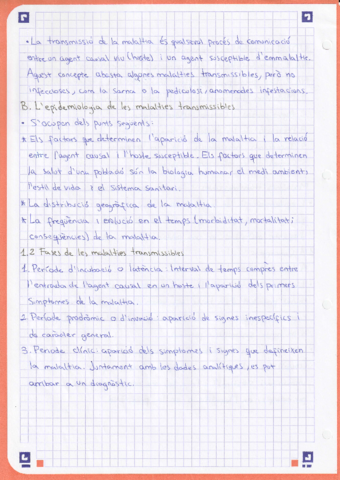 • La transmissió de la malaltia és qualsevol procés de comunicació
entre un agent causal viu (hoste) i un agent susceptible d'emmalaltir.
Aquest concepte abasta algunes malalties transmissibles, però no
infeccioses, com la Sarna o la pediculosi, anomenades infestacions.
B. L'epidemiologia de les malalties transmissibles
• S'ocupen dels punts següents:
* Els factors que determinen l'aparició de la malaltia i la relació
entre l'agent causal i l'hoste susceptible. Els factors que determinen
la salut d'una població són la biologia humana, el medi ambient,
l'estil de vida i el sistema sanitari.
* La distribució geogràfica de la malaltia
* La freqüència i evolució en el temps (morbiditat, mortalitat i
conseqüències) de la malaltia.
1.2 Fases de les malalties transmissibles
1. Període d'incubació o latència. Interval de temps comprès entre
l'entrada de l'agent causal en un hoste i l'aparició dels primers
símptomes de la malaltia.
2 Període prodròmic o d'invasió: aparició de signes inespecífics i
de caràcter general.
3. Període clínic: aparició dels símptomes i signes que defineixen
la malaltia. Juntament amb les dades analítiques, es pot
arribar a un diagnòstic.